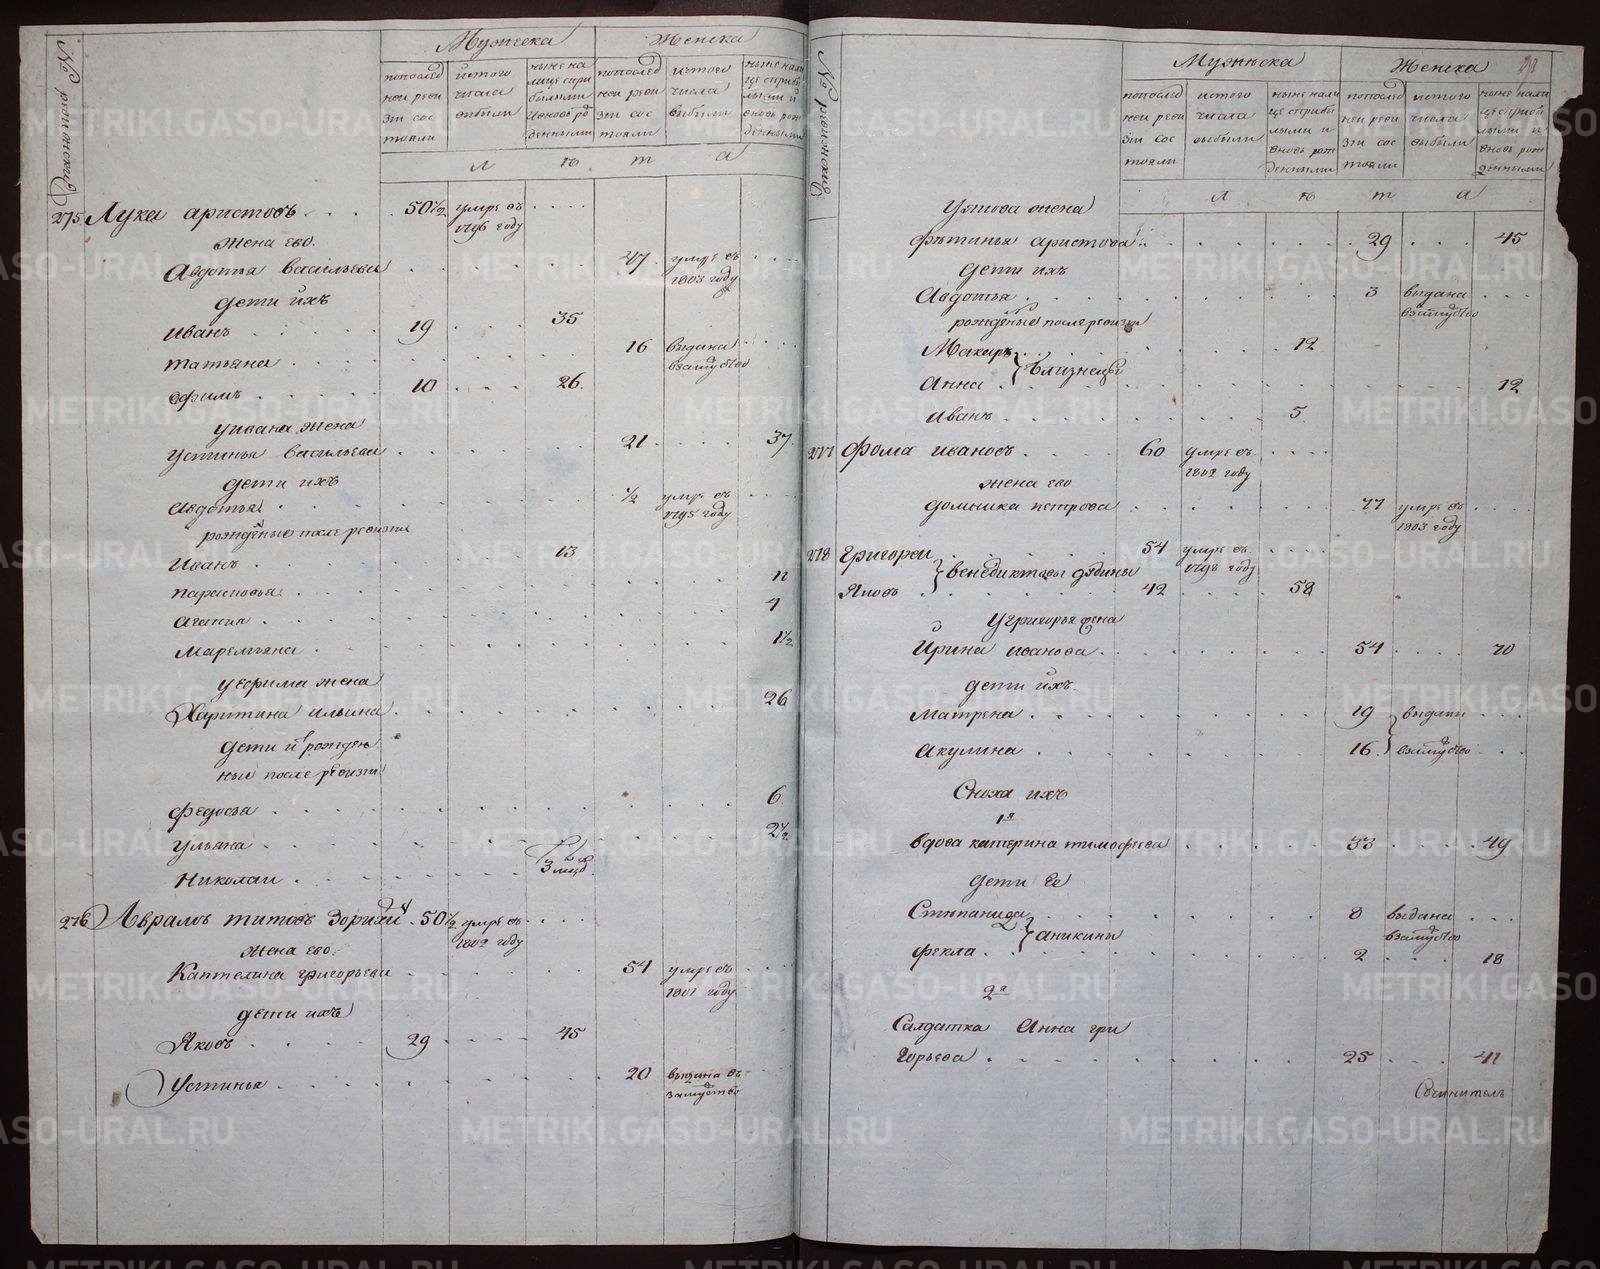 № ревижский
Мужеска
Женска
попослед
ней реви
зіи сос
тояли
истого
числа
выбыли
ныне на
лице спри
былыми
и вновь ро
жденными
попослед
ней реви
зіи сос
тояли
истого
числа
выбыли
ныне нали
це сприбы
лыми и
вновь рож
денными
л ѣ т а
275 Лука аристовъ 50½ умре въ
1796 году
жена ево
Авдотья васильева 47 умре въ
1803 году
дети ихъ
Иванъ 19 35
татьяна 16 выдана
взамуство
ефимъ 10 26
уивана жена
устинья васильева 21 37
дети ихъ
авдотья ½ умре въ
1795 году
рожденые после ревизіи
Иванъ 13
парасковья 11
агафья 7
Маремьяна 1½
уефима жена
Харитина ильина 26
дети ихъ рожден
ные после ревизіи
федосья 6
ульяна 2½
Николаи 3 мцъ
276 Аврамъ титовъ Зорихи 50½ умре въ
1802 году
жена ево
Каптелина григорьева 54 умре въ
1801 году
дети ихъ
Яковъ 29 45
Устинья 20 выдана въ
замуство
№ ревижский
Мужеска
Женска
попослед
ней реви
зіи сос
тояли
истого
числа
выбыли
ныне нали
це сприбы
лыми и
вновь рож
денными
попослед
ней реви
зіи сос
тояли
истого
числа
выбыли
ныне нали
це сприбы
лыми и
вновь рож
денными
л ѣ т а
Уякова жена
фетинья аристова 29 45
дети ихъ
Авдотья 3 выдана
взамуство
рожденые послеревизіи
Макаръ 12
близнецы
Анна 12
Иванъ 5
277 Фома ивановъ 60 умре въ
1802 году
жена ево
домника петрова 77 умре въ
1803 году
278 Григореи 54 умре въ
1798 году
венедиктовы дядины
Яковъ 42 58
Угригорья жена
Ирина иванова 54 70
дети ихъ
матрена 19 выданы
акулина 16 взамуство
Сноха ихъ
1я
вдова катерина тимофеева 33 49
дети ее
Степанида 8 выдана
взамуство
аникины
фекла 2 18
2я
Салдатка Анна гри
горьева 25 41
Сочинитель
METRIKI.GASO-URAL.RU